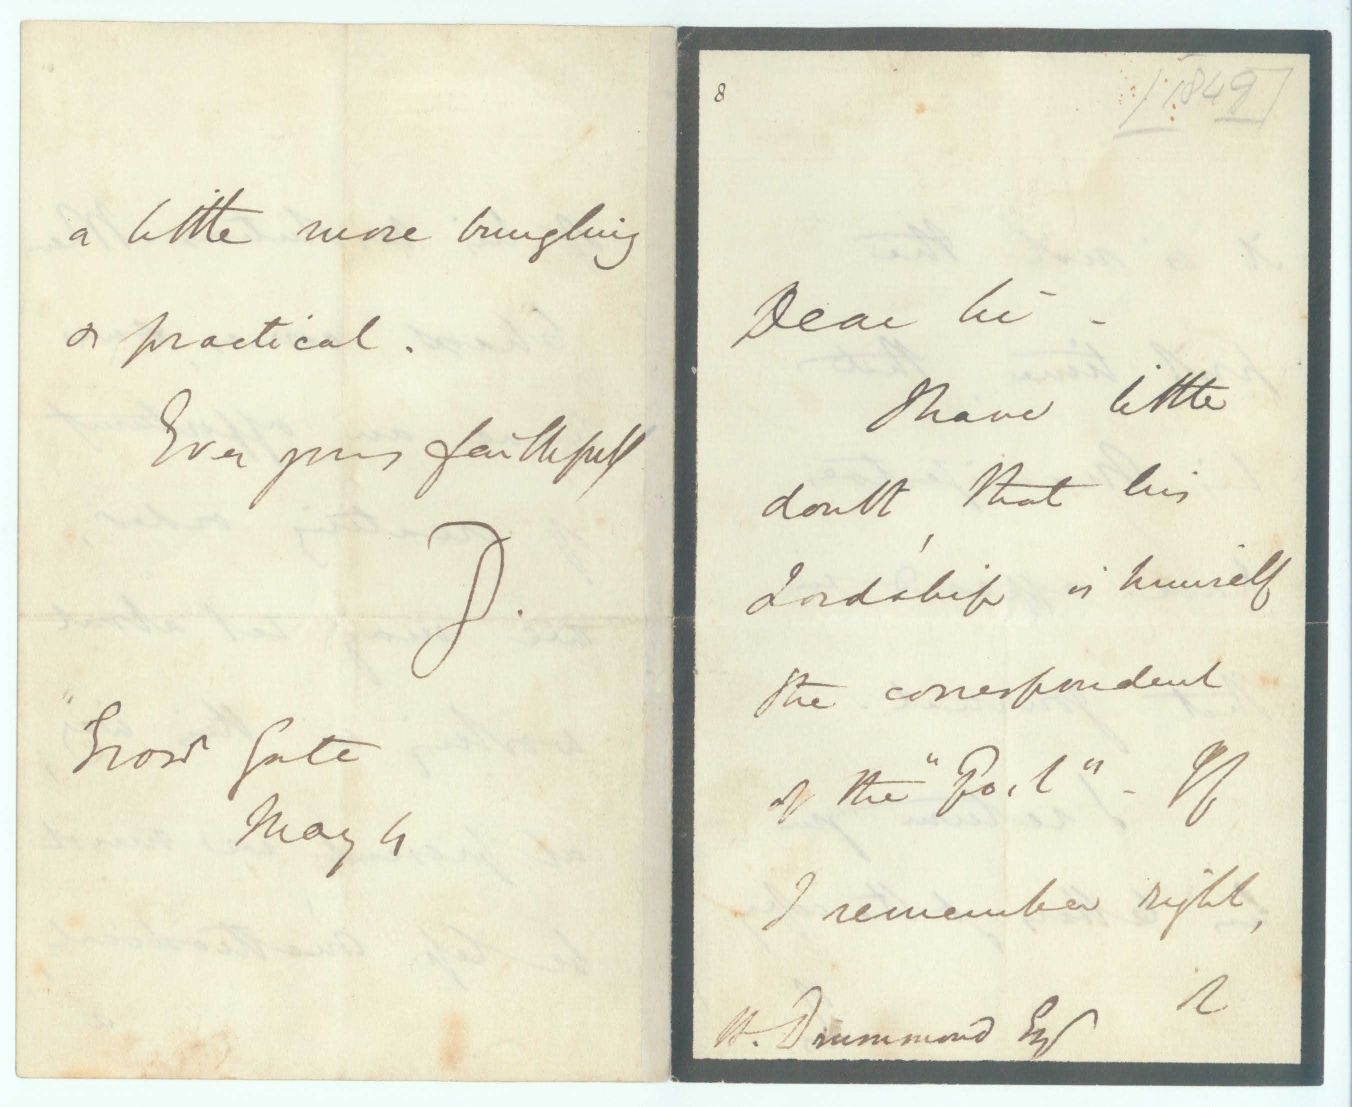 8
[1849]
Dear Sir -
I have little
doubt that his
Lordship is himself
the correspondent
of the "Post" - If
I remember right,
it
H. Drummond Esq
a little more bungling
& practical.
Ever yours faithfully
D.
Grosr Gate
May 4